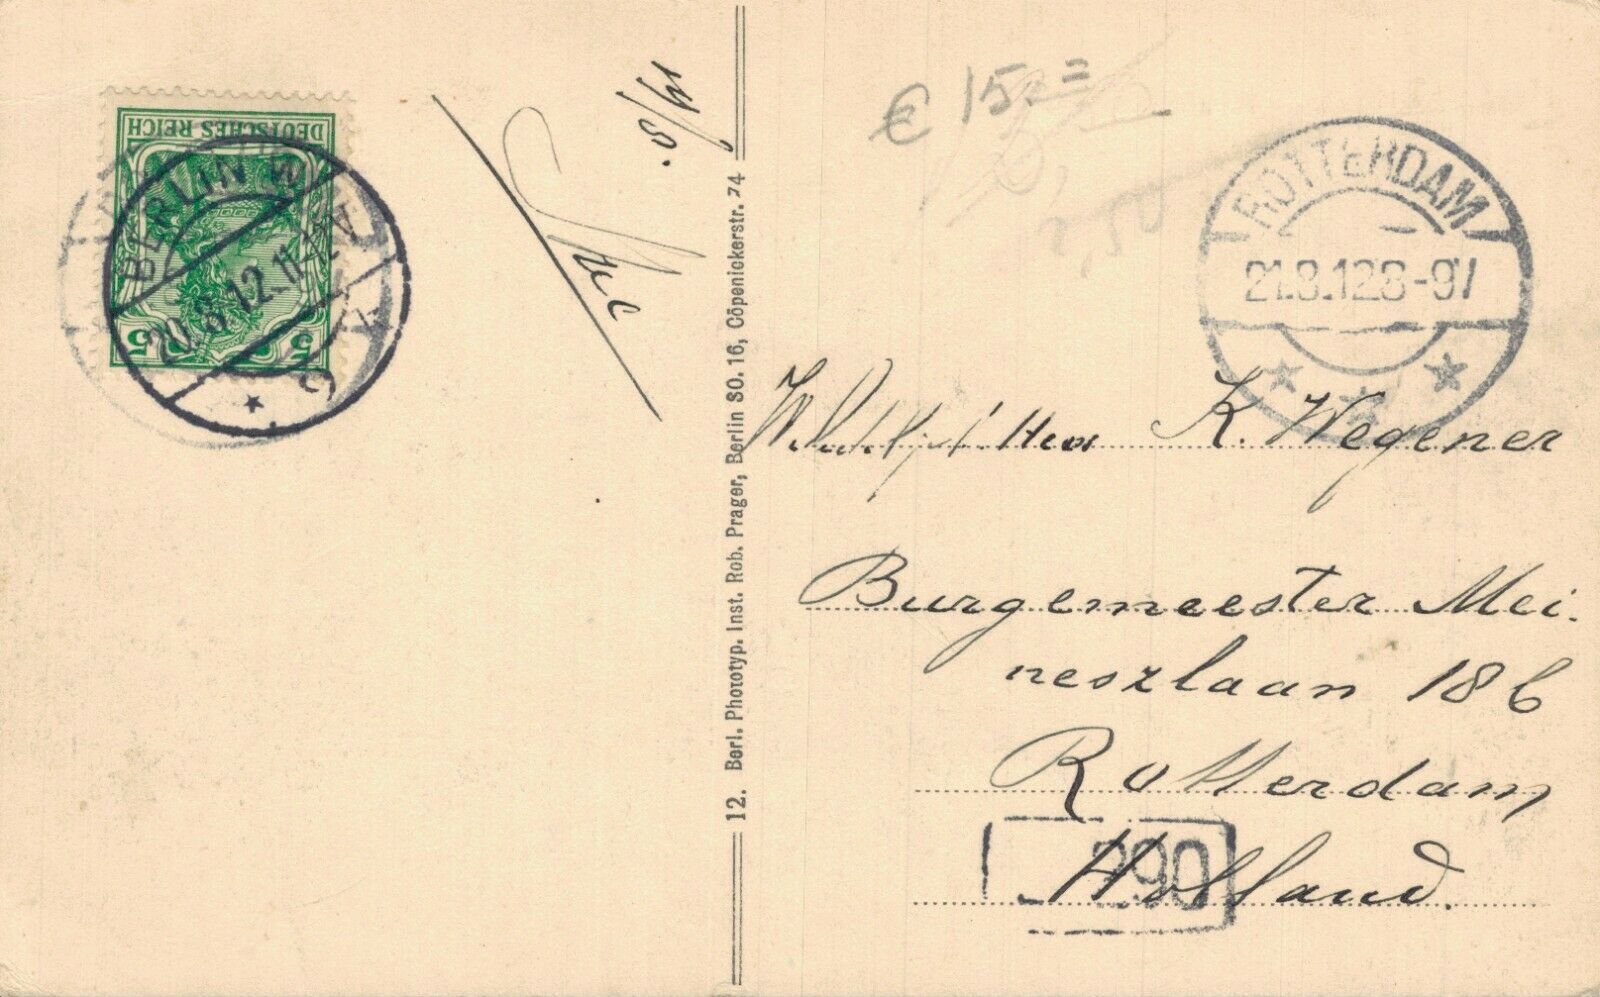 DEUTSCHES REICH
5 5
BERLIN W
20.8.12.11-12V.
* 9
14/8.
12. Berl. Phototyp. Inst. Rob. Prager, Berlin SO. 16, Cöpenickerstr. 74
€ 15,=
2,50
ROTTERDAM
21.8.12 8-9V
Heer K. Wegener
Burgemeester Mei-
neszlaan 18 b
Rotterdam
Holland.
290